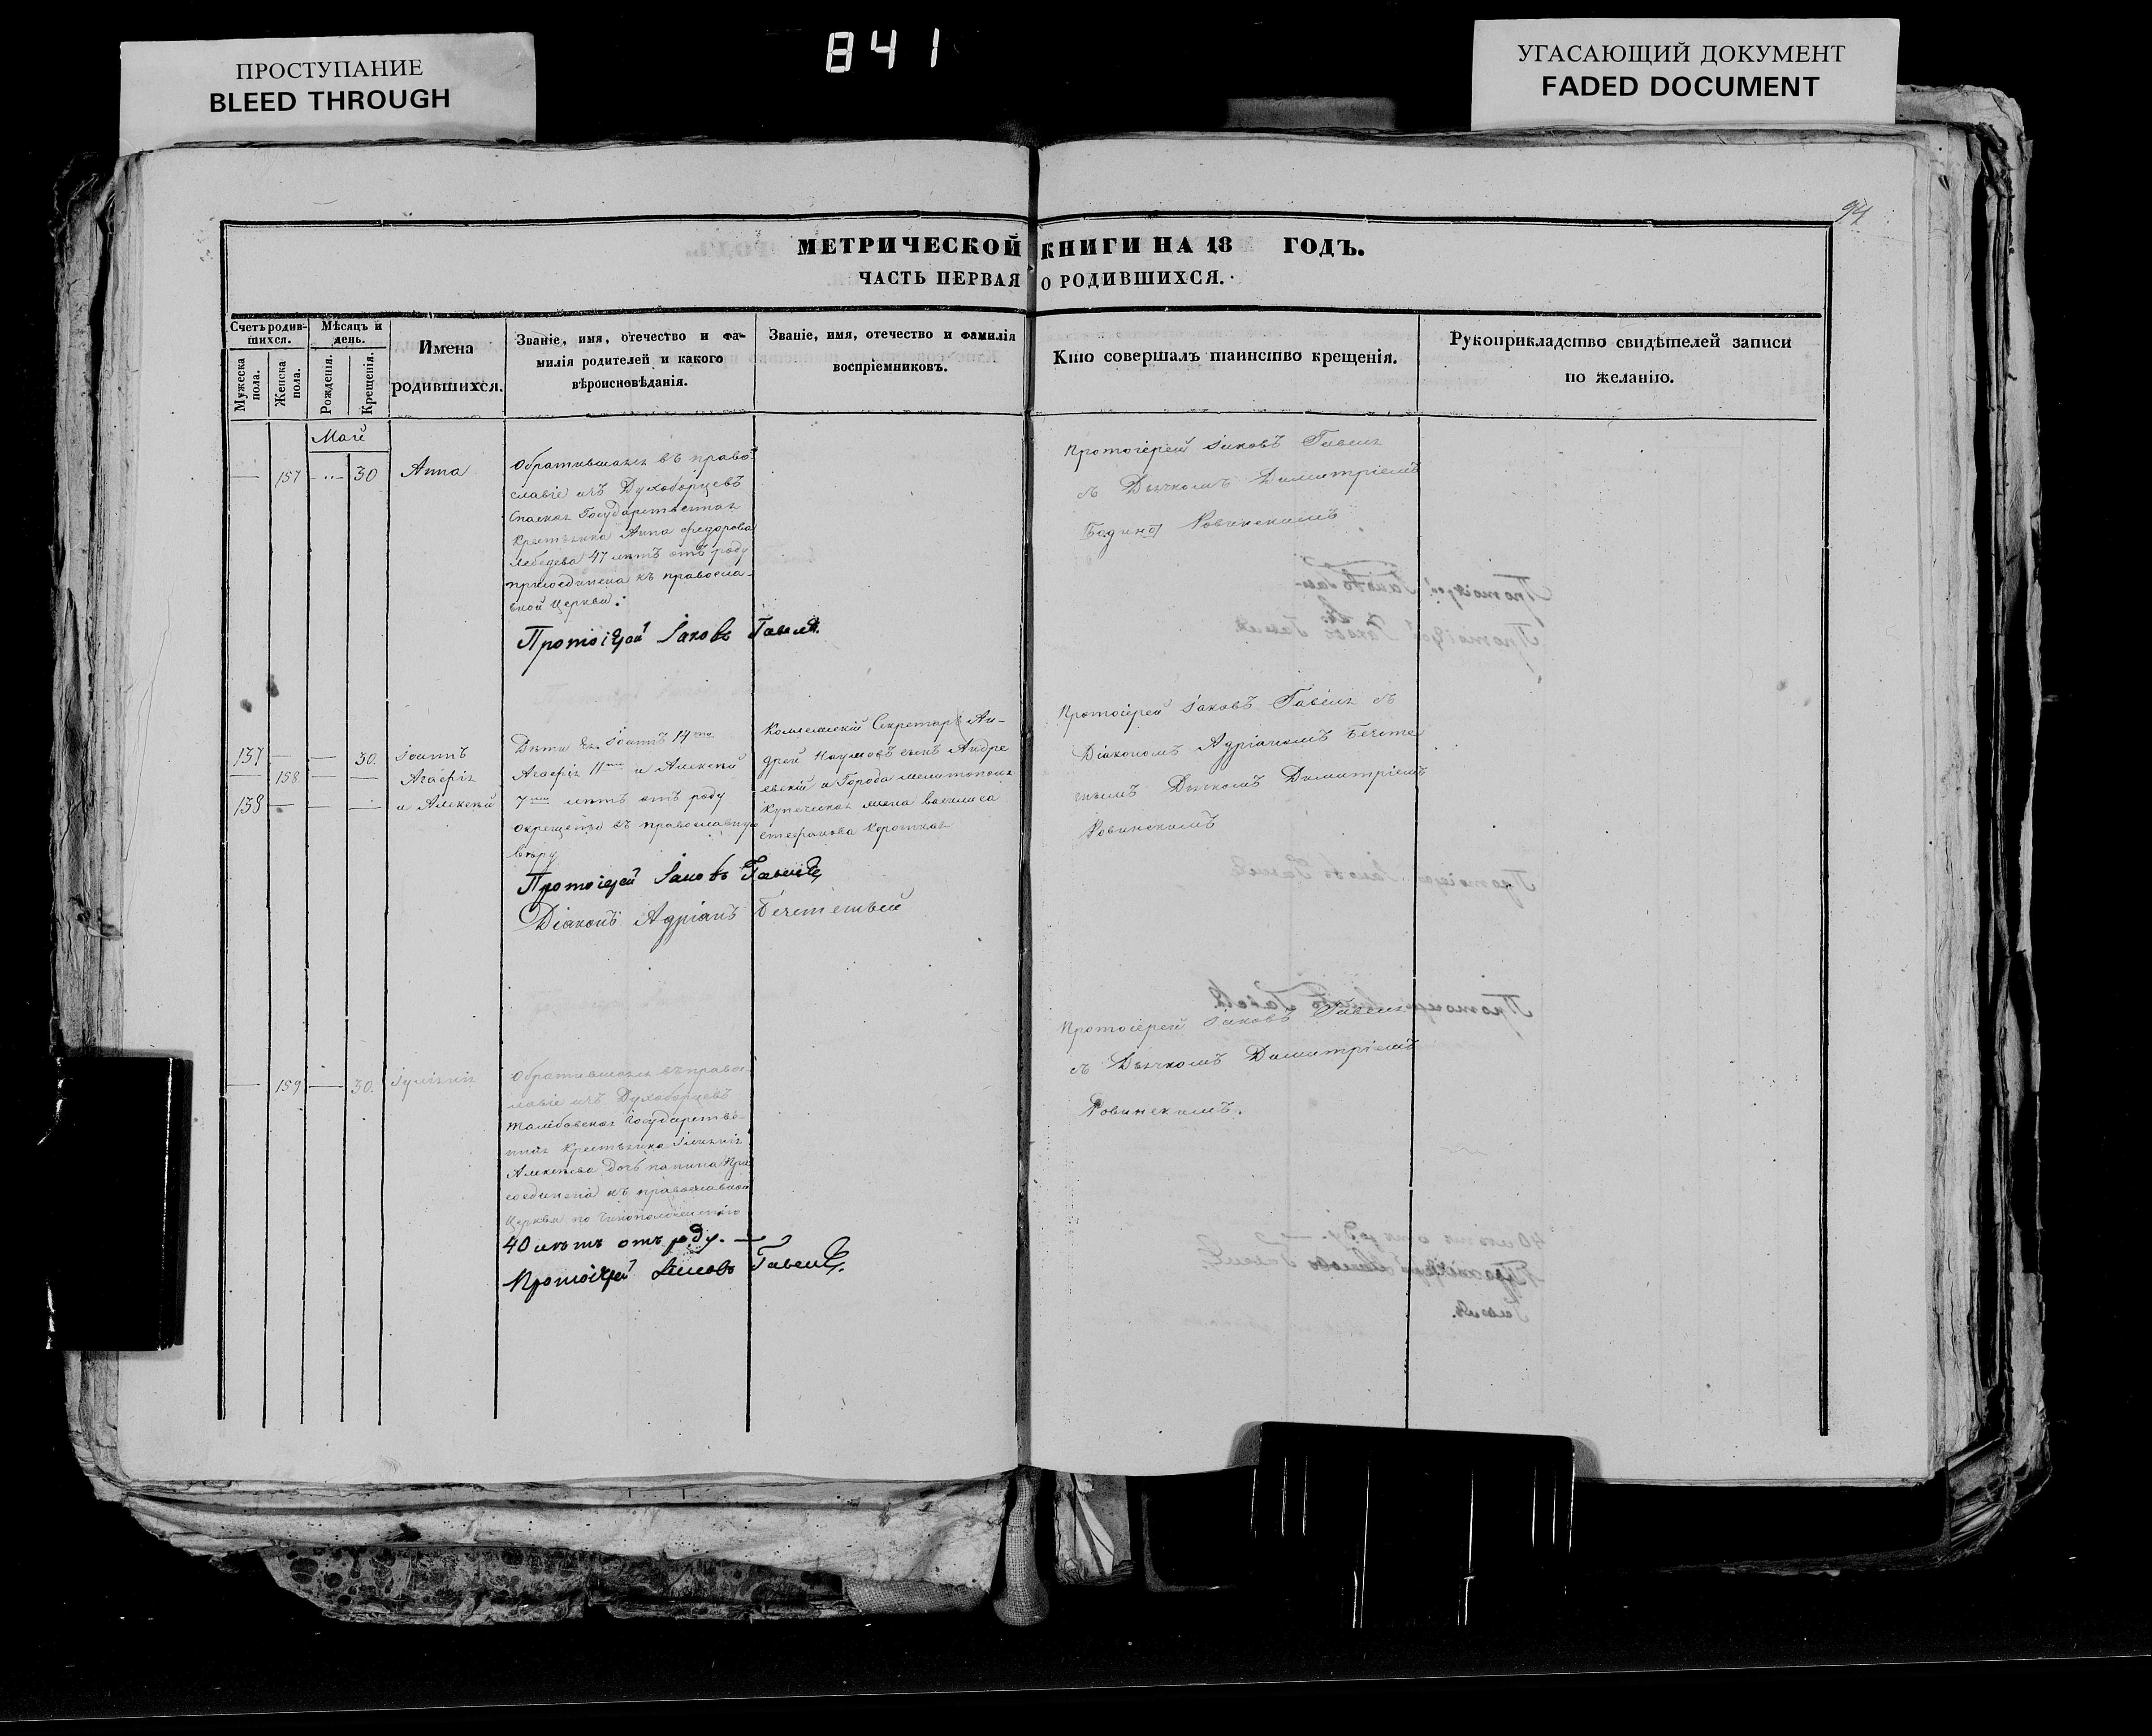 ПРОСТУПАНИЕ
BLEED THROUGH
841
УГАСАЮЩИЙ ДОКУМЕНТ
FADED DOCUMENT
94
МЕТРИЧЕСКОЙ КНИГИ НА 18 ГОДЪ.
ЧАСТЬ ПЕРВАЯ О РОДИВШИХСЯ.
Счетъ родив-
шихся.
Мужеска пола.
Женска пола.
Мѣсяцъ и
день.
Рожденія.
Крещенія.
Имена
родившихся.
Званіе, имя, отечество и фа-
милія родителей и какого
вѣроисновѣданія.
Званіе, имя, отечество и фамилія
воспріемниковъ.
Кто совершалъ таинство крещенія.
Рукоприкладство свидѣтелей записи
по желанію.
Май
157 30 Анна
Обратившаяся въ право-
славіе изъ Духоборцевъ
Спаская Государственная
крестьянка Анна Федорова
Лебедева 47 лѣтъ отъ роду
присоединена къ правосла-
вной Церкви.
Протоіерей Іаковъ Гавель
Протоіерей Іаковъ Гавель
съ Дьячкомъ Димитріемъ
Ровинскимъ
137 30. Іоаннъ
158 Агафія
138 и Алексѣй
Дѣти ея Іоаннъ 14
Агафія 11 и Алексѣй
7 лѣтъ отъ роду
окрещены въ православную
вѣру
Протоіерей Іаковъ Гавель
Діаконъ Адріанъ
Коллежскій Секретарь Ан-
дрей Наумовъ сынъ Андре
евскій и Города Мелитополя
купеческая жена Василиса
Стефанова Короткая
Протоіерей Іаковъ Гавель съ
Діакономъ Адріаномъ
Дьячкомъ Димитріемъ
Ровинскимъ
159 30. Іуліанія
Обратившаяся въ право-
славіе изъ Духоборцевъ
Государстве-
нная крестьянка Іуліанія
Алексѣева дочь при
соединена къ православной
Церкви по чиноположенію
40 лѣтъ отъ роду.
Протоіерей Іаковъ Гавель.
Протоіерей Іаковъ Гавель
съ Дьячкомъ Димитріемъ
Ровинскимъ.